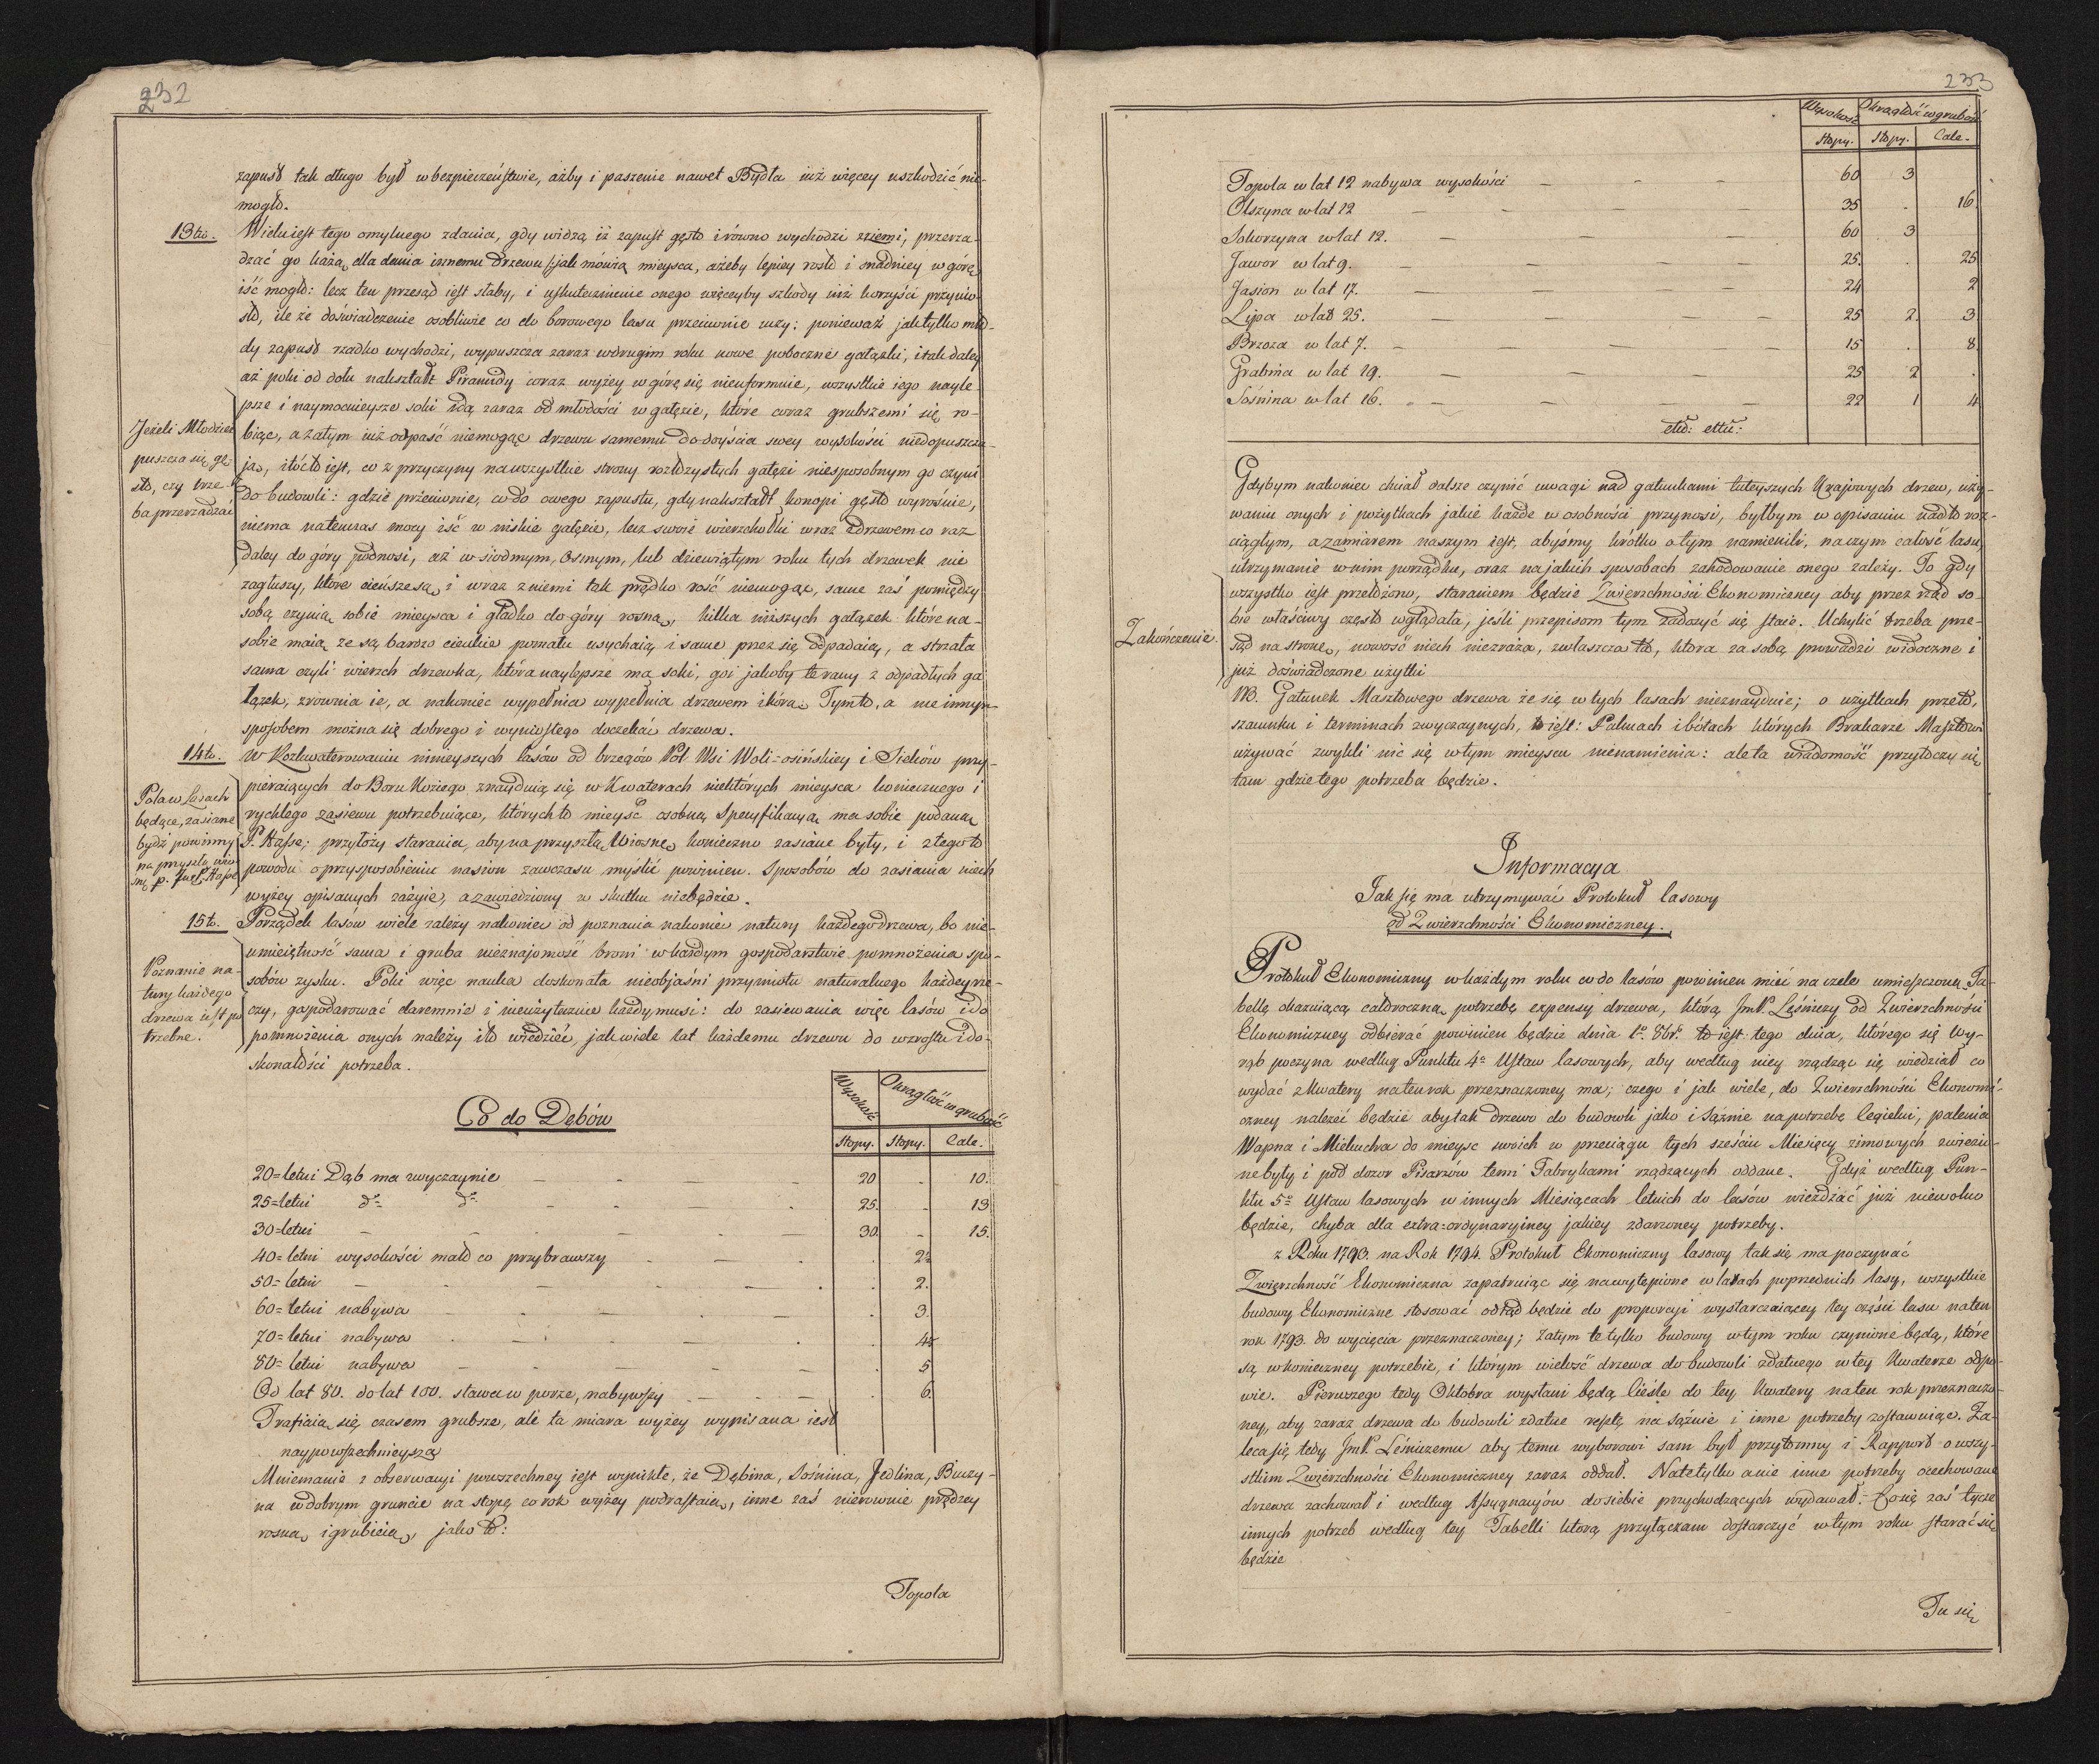 232
zapust tak długo był w bezpieczeństwie, ażby i paszenie nawet Bydła iuż więcey uszkodzić nie-
mogło.
13tio. Wielu iest tego omylnego zdania, gdy widzą iż zapust gęsto i równo wychodzi z ziemi, przerza-
dzać go każą, dla dania innemu drzewu /:jak mówią mieysca, ażeby lepiey rosło i snadniey w górę
iść mogło: lecz ten przesąd iest słaby, i uskutecznienie onego więceyby szkody niż korzyści przynio-
sło, ile że doświadczenie osobliwie co do borowego lasu przeciwnie uczy: ponieważ jak tylko mło-
dy zapust rzadko wychodzi, wypuszcza zaraz w drugim roku nowe poboczne gałązki, i tak daley
aż póki od dołu nakształt Piramidy coraz wyżey w górę się nieuformuie, wszystkie iego nayle-
psze i naymocnieysze soki idą zaraz od młodości w gałęzie, które coraz grubszemi się ro-
Jeżeli Młodzież
puszcza się gę-
sto, czy trze-
ba przerzadzać
biąc, a zatym iuż odpaść niemogąc drzewu samemu do doyścia swey wysokości niedopuszcza-
ją, i tóć to iest, co z przyczyny na wszystkie strony rozłożystych gałęzi niesposobnym go czyni
do budowli: gdzie przeciwnie, co do owego zapustu, gdy nakształt konopi gęsto wyrośnie,
niema natenczas mocy iść w niskie gałęzie, lecz swoie wierzchołki wraz z drzewem co raz
daley do góry podnosi, aż w siódmym, ósmym, lub dziewiątym roku tych drzewek nie
zagłuszy, które cieńsze są, i wraz z niemi tak prędko rość niemogąc, same zaś pomiędzy
sobą czynią sobie mieysca i gładko do góry rosną, kilka niższych gałązek które na-
sobie maią że są bardzo cienkie pomału usychaią i same przez się odpadaią, a strzała
sama czyli wierzch drzewka, która naylepsze ma soki, goi jakoby te rany z odpadłych ga-
łązek, zrównia ie, a nakoniec wypełnia wypełnia drzewem i korą. Tymto, a nie innym
sposobem można się dobrego i wyniosłego doczekać drzewa.
14to. W Rozkwaterowaniu ninieyszych lasów od brzegów Pól Wsi Woli-osińskiey i Sielców przy-
Pola w Lasach
będące, zasiane
bydź powinny
na przyszłą wio-
snę p. JmćP. Hasse
pieraiących do Boru Koziego, znayduią się w Kwaterach niektórych mieysca koniecznego i
rychłego zasiewu potrzebuiące, których to mieysc osobną Specyfikacyą ma sobie podaną
P. Hasse; przyłoży starania, aby na przyszłą Wiosnę koniecznie zasiane były, i z tego to
powodu o przysposobieniu nasion zawczasu myślić powinien. Sposobów do zasiania niech
wyżey opisanych zażyie, a zawiedziony w skutku niebędzie.
15to. Porządek lasów wiele zależy nakoniec od poznania nakoniec natury każdego drzewa, bo nie-
Poznanie na-
tury każdego
drzewa iest po-
trzebne.
umieiętność sama i gruba nieznajomość broni w każdym gospodarstwie pomnożenia spo-
sobów zysku. Póki więc nauka doskonała nieobjaśni przymiotu naturalnego każdey rze-
czy, gospodarować daremnie i nieużytecznie każdy musi: do zasiewania więc lasów i do
pomnożenia onych należy i to wiedzieć, jak wiele lat każdemu drzewu do wzrostu i do-
skonałości potrzeba.
Wysokość Okrągłość w grubość
Co do Dębów
Stopy. Stopy. Cale.
20=letni Dąb ma zwyczaynie - - - 20 - 10.
25=letni do do - - - 25. - 13
30=letni - - - 30. - 15.
40=letni wysokości mało co przybrawszy - - . 2½
50=letni - - - . 2.
60=letni nabywa - - . 3.
70=letni nabywa - - . 4½
80=letni nabywa - - - . 5
Od lat 80. do lat 100. stawa w porze, nabywszy - - . 6.
Trafiaią się czasem grubsze, ale ta miara wyżey wypisana iest
naypowszechnieyszą
Mniemanie z obserwacyi powszechney iest wynikłe, że Dębina, Sośnina, Jedlina, Buczy-
na w dobrym gruncie na stopę co rok wyżey podrastaią, inne zaś nierownie prędzey
rosną, i grubieią, jako to:
Topola
233
Wysokość Okrągłość w grubość
Stopy. Stopy. Cale.
Topola w lat 12 nabywa wysokości - - - 60 3
Olszyna w lat 12 - - - 35 . 16.
Sokorzyna w lat 12. - - - 60 3
Jawor w lat 9. - - - 25. . 25
Jasion w lat 17. - - - 24 2
Lipa w lat 25. - - - 25 2. 3
Brzoza w lat 7. - - - 15 . 8.
Grabina w lat 19. - - - 25 2 .
Sośnina w lat 16. - - - 22 1 4
etc: etc:
Gdybym nakoniec chciał dalsze czynić uwagi nad gatunkami tuteyszych Kraiowych drzew, uży-
waniu onych i pożytkach jakie każde w osobności przynosi, byłbym w opisaniu nadto roz-
ciągłym, a zamiarem naszym iest, abyśmy krótko o tym namienili, na czym całość lasu,
utrzymanie w nim porządku, oraz na jakich sposobach zahodowanie onego zależy. To gdy
wszystko iest przełożono, staraniem będzie Zwierzchności Ekonomiczney aby przez rząd so-
Zakończenie.
bie właściwy często wglądała, jeśli przepisom tym zadosyć się staie. Uchylić trzeba prze-
sąd na stronę, nowość niech niezraża, zwłaszcza ta, która za sobą prowadzi widoczne i
już doświadczone użytki
NB. Gatunek Masztowego drzewa że się w tych lasach nieznayduie; o użytkach przeto,
szacunku i terminach zwyczaynych, to iest: Palmach i bótach których Brakarze Masztowi
używać zwykli nic się w tym mieyscu nienamienia: ale ta wiadomość przytoczy się
tam gdzie tego potrzeba będzie.
Informacya
Jak się ma utrzymywać Protokuł lasowy
od Zwierzchności Ekonomiczney.
Protokuł Ekonomiczny w każdym roku co do lasów powinien mieć na czele umieszczoną Ta-
bellę okazuiącą całoroczną potrzebę expensy drzewa, którą JmP. Leśniczy od Zwierzchności
Ekonomiczney odbierać powinien będzie dnia 1o. 8br. to iest tego dnia, którego się Wy-
rąb poczyna według Punktu 4o Ustaw lasowych, aby według niey rządząc się wiedział co
wydać z Kwatery na ten rok przeznaczoney ma; czego i jak wiele, do Zwierzchności Ekonomi-
czney należeć będzie aby tak drzewo do budowli jako i Sążnie na potrzebę Cegielni, palenia
Wapna i Mielucha do mieysc swoich w przeciągu tych sześciu Miesięcy zimowych zwiezio-
ne były i pod dozor Pisarzów temi Fabrykami rządzących oddane. Gdyż według Pun-
ktu 5o Ustaw lasowych w innych Miesiącach letnich do lasów wieżdżać już niewolno
będzie, chyba dla extra=ordynaryiney jakiey zdarzoney potrzeby.
z Roku 1793. na Rok 1794. Protokuł Ekonomiczny lasowy tak się ma poczynać
Zwierzchność Ekonomiczna zapatruiąc się na wytępione w latach poprzednich lasy, wszystkie
budowy Ekonomiczne stosować odtąd będzie do proporcyi wystarczaiącey tey części lasu na ten
rok 1793. do wycięcia przeznaczoney; zatym te tylko budowy w tym roku czynione będą, które
są w konieczney potrzebie, i którym wielość drzewa do budowli zdatnego w tey Kwaterze odpo-
wie. Pierwszego tedy Oktobra wysłani będą Cieśle do tey Kwatery na ten rok przeznaczo-
ney, aby zaraz drzewa do budowli zdatne resztę na sążnie i inne potrzeby zostawuiąc. Za-
leca się tedy JmP. Leśniczemu aby temu wyborowi sam był przytomny i Rapport o wszy-
stkim Zwierzchności Ekonomiczney zaraz oddał. Na te tylko a nie inne potrzeby ocechowane
drzewa zachował i według Assygnacyów do siebie przychodzących wydawał. Co się zaś tycze
innych potrzeb według tey Tabelli którą przyłączam dostarczyć w tym roku starać się
będzie
Tu się